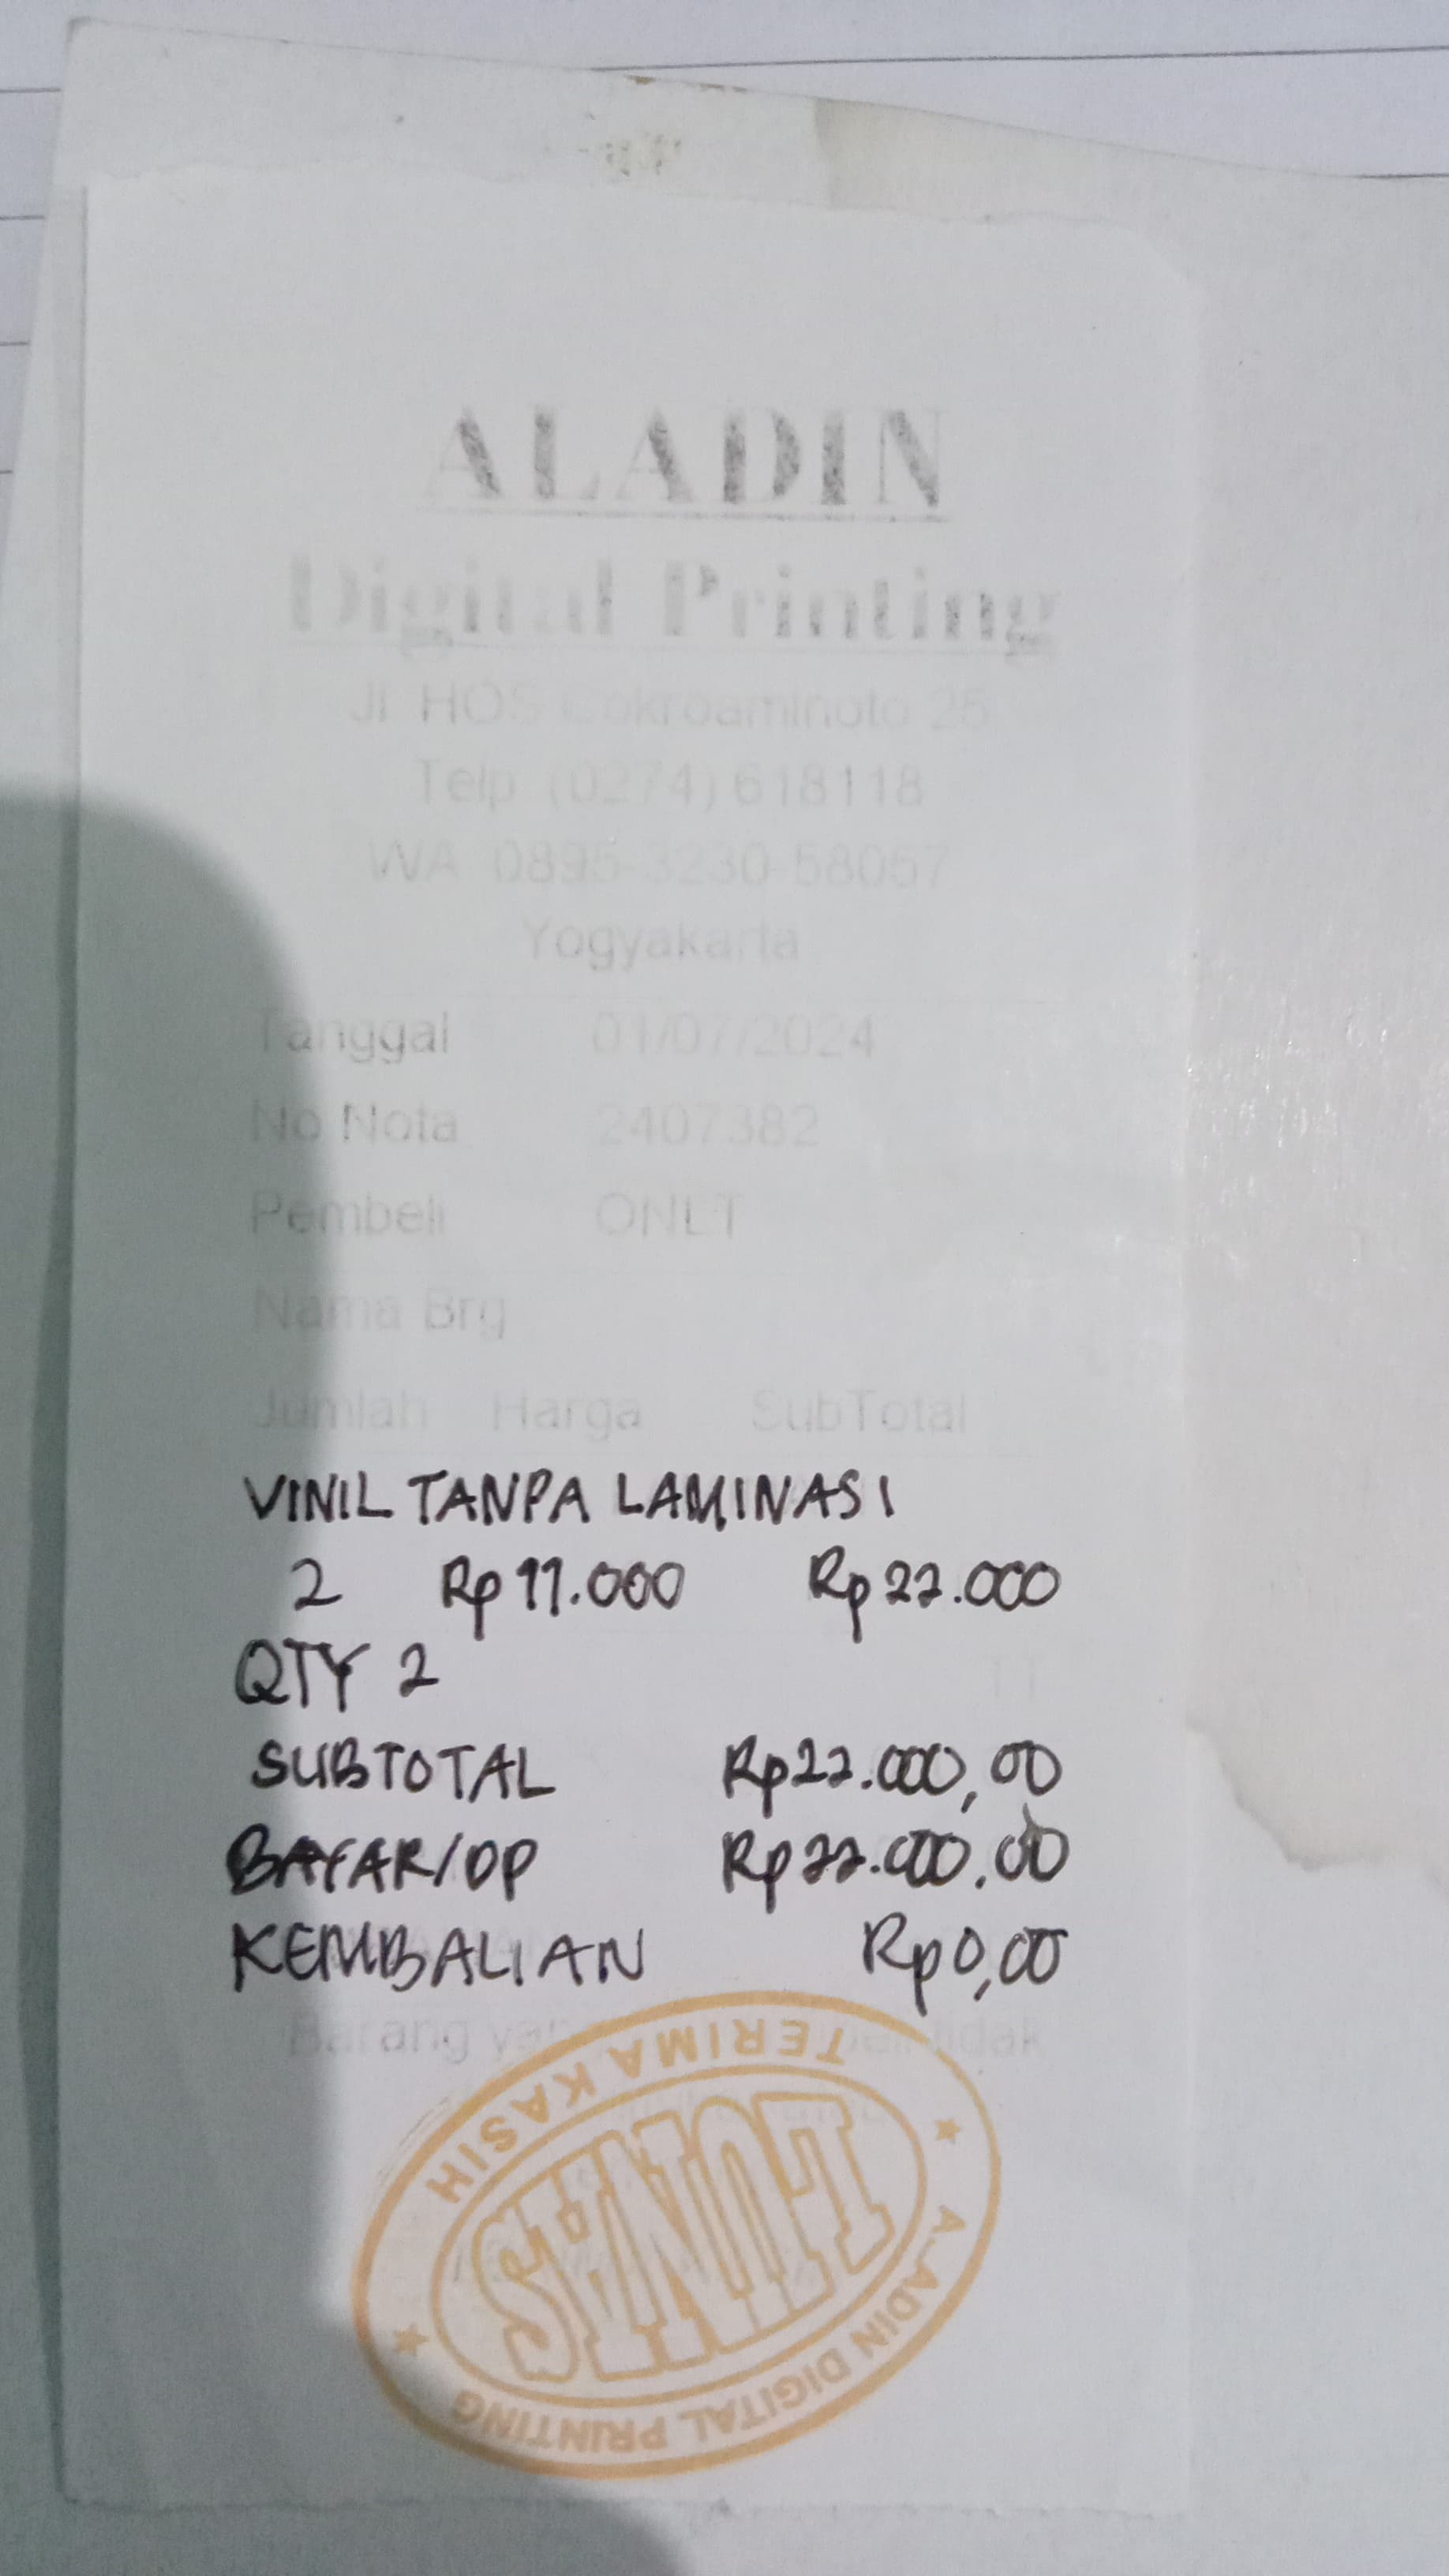 ALADIN
Digital Printing
Jl HOS Cokroaminoto 25
Telp (0274) 618118
WA 0895-3230-58057
Yogyakarta
Tanggal 01/07/2024
No Nota 2407382
Pembeli ONLT
Nama Brg
Jumlah Harga SubTotal
VINIL TANPA LAMINASI
2 Rp 11.000 Rp 22.000
QTY 2
SUBTOTAL Rp22.000,00
BAYAR/DP Rp22.000,00
KEMBALIAN Rp0,00
Barang tidak
TERIMA KASIH
LUNAS
ALADIN DIGITAL PRINTING